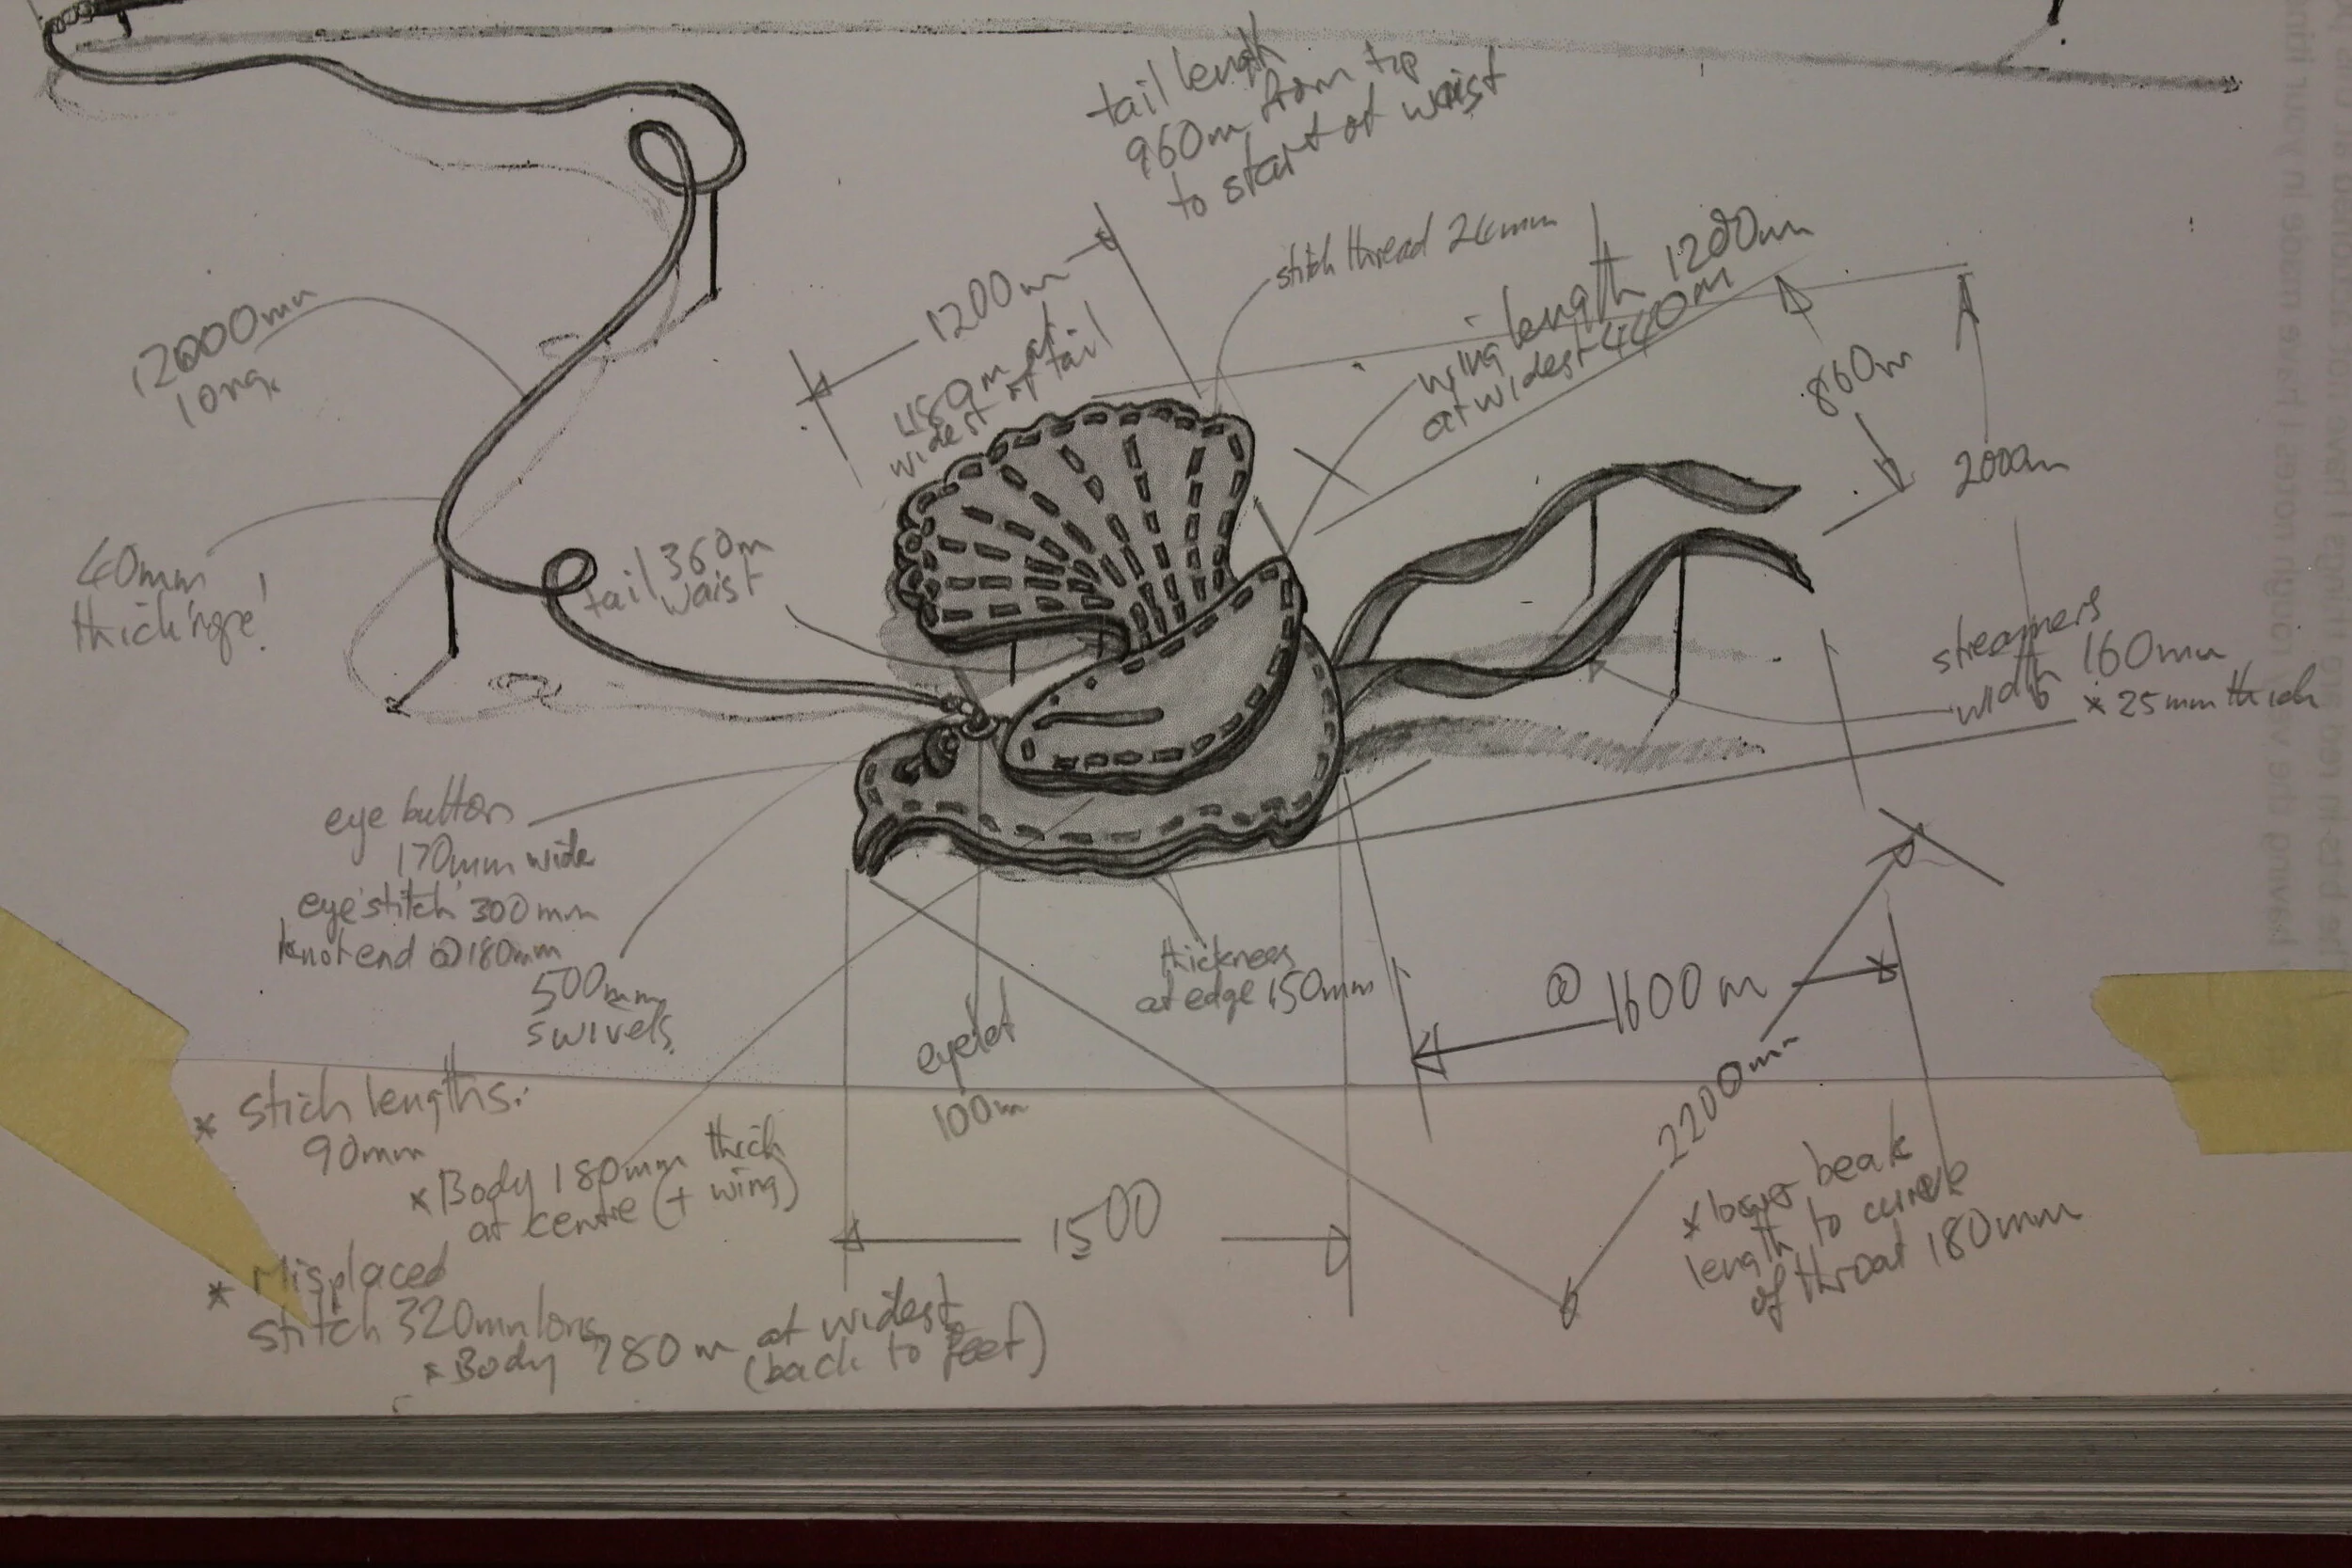 tail length
960m from tip
to start of waist
stitch thread 24mm
1200m
at
widest of tail
wing length 1200mm
at widest 440m
12000mm
long.
860m
2000m
40mm
thick 'rope'
tail 360m
waist
streamers
width 160mm
x 25mm thick
eye button
170mm wide
eye 'stitch' 300mm
knot end @180mm
500mm
swivels
eyelet
100m
thickness
at edge 150mm
@ 1600m
2200mm
* stich lengths:
90mm
* Body 180mm thick
at centre (+ wing)
1500
* lower beak
length to curve
of throat 180mm
* Misplaced
stitch 320mm long
* Body 780m at widest
(back to feet)
made in your
rough notes I have